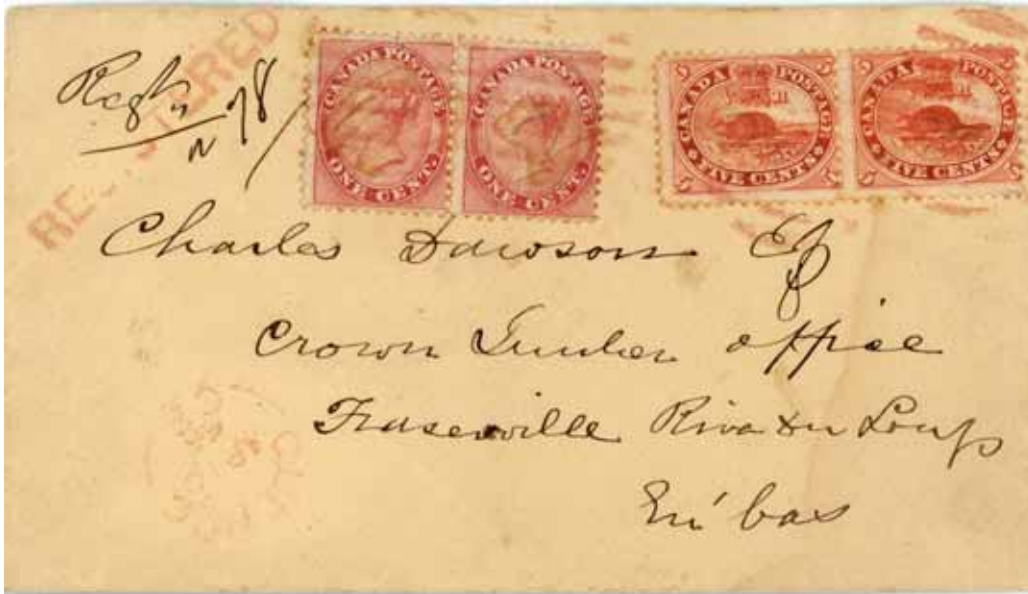 REGISTERED
Regd
N 78
CANADA POSTAGE
ONE CENT.
CANADA POSTAGE
ONE CENT.
5 CANADA POSTAGE 5
5 FIVE CENTS 5
5 CANADA POSTAGE 5
5 FIVE CENTS 5
Charles Dawson Esq
Crown Timber office
Fraserville Riv du Loup
En bas